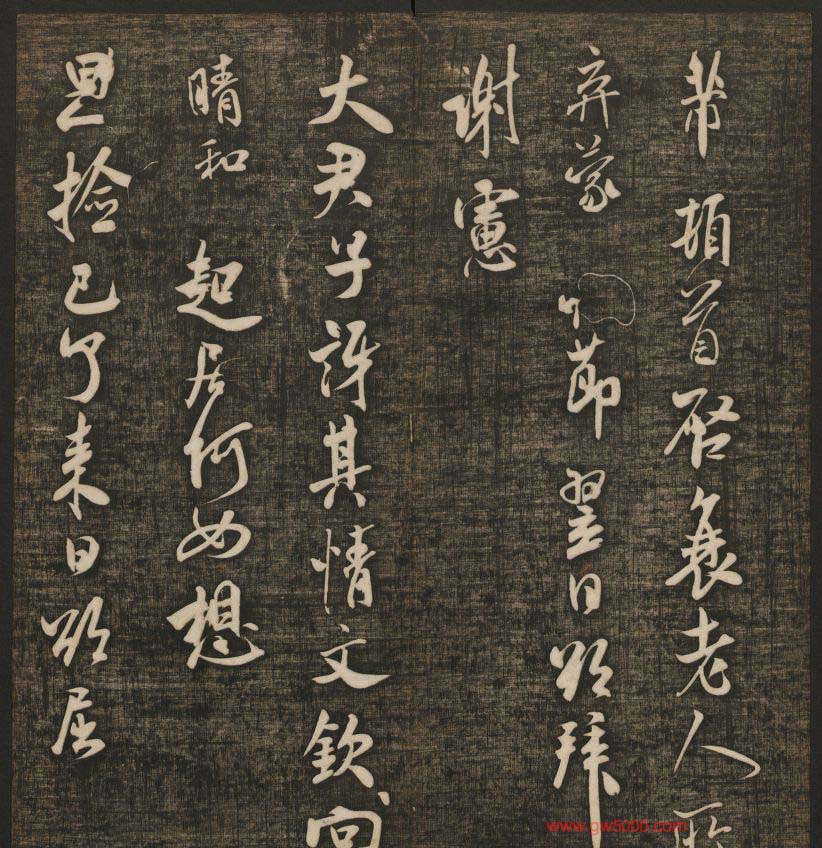 芾頓首啓衰老人所
弃蒙 節翌日欲拜
謝憲
大君子訝其情文欽向
晴和 起居何如想
撿已了来日欲屈
www.gw5000.com